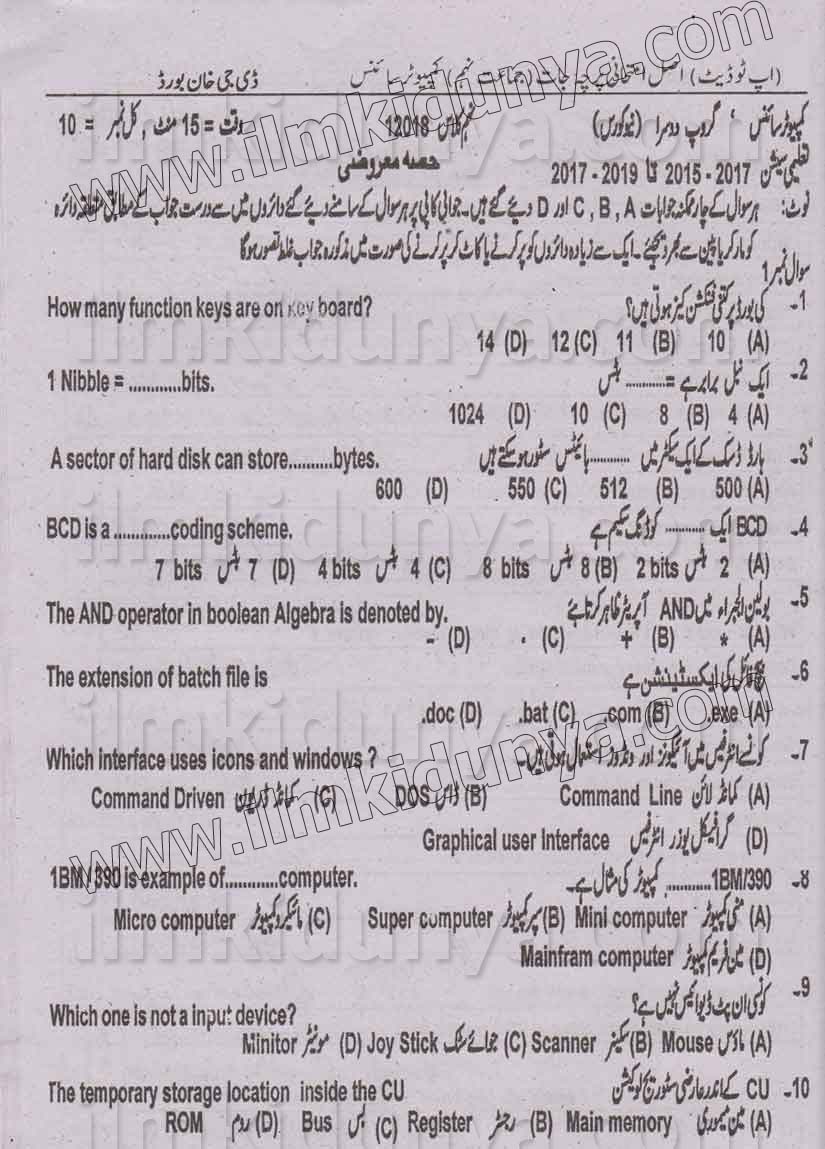 (اپ ٹو ڈیٹ) اصل امتحانی پرچہ جات (جماعت نہم) کمپیوٹر سائنس ڈی جی خان بورڈ
کمپیوٹر سائنس ، گروپ دوسرا (نیو کورس) 12018 وقت = 15 منٹ , کل نمبر = 10
تعلیمی سیشن 2017 - 2015 تا 2019 - 2017 حصہ معروضی
نوٹ: ہر سوال کے چار ممکنہ جوابات C , B , A اور D دیے گئے ہیں۔ جوابی کاپی پر ہر سوال کے سامنے دیے گئے دائروں میں سے درست جواب کے مطابق متعلقہ دائرہ
کو مارکر یا پین سے بھر دیجئے۔ ایک سے زیادہ دائروں کو پر کرنے یا کاٹ کر پر کرنے کی صورت میں مذکورہ جواب غلط تصور ہوگا
سوال نمبر 1
1- کی بورڈ پر کتنی فنکشن کیز ہوتی ہیں؟ How many function keys are on key board?
(A) 10 (B) 11 (C) 12 (D) 14
2- ایک نبل برابر ہے =........... بٹس 1 Nibble = ............bits.
(A) 4 (B) 8 (C) 10 (D) 1024
3- ہارڈ ڈسک کے ایک سیکٹر میں .......... بائیٹس سٹور ہو سکتے ہیں A sector of hard disk can store..........bytes.
(A) 500 (B) 512 (C) 550 (D) 600
4- BCD ایک .......... کوڈنگ سکیم ہے BCD is a .............coding scheme.
(A) 2 بٹس 2 bits (B) 8 بٹس 8 bits (C) 4 بٹس 4 bits (D) 7 بٹس 7 bits
5- بولین الجبراء میں AND آپریٹر ظاہر کرتا ہے The AND operator in boolean Algebra is denoted by.
(A) * (B) + (C) . (D) -
6- بیچ فائل کی ایکسٹینشن ہے The extension of batch file is
(A) .exe (B) .com (C) .bat (D) .doc
7- کونسے انٹرفیس میں آئیکونز اور ونڈوز استعمال ہوتی ہیں۔ Which interface uses icons and windows ?
(A) کمانڈ لائن Command Line (B) ڈاس DOS (C) کمانڈ ڈریون Command Driven
(D) گرافیکل یوزر انٹرفیس Graphical user Interface
8- 1BM/390 ........... کمپیوٹر کی مثال ہے۔ 1BM/390 is example of............computer.
(A) منی کمپیوٹر Mini computer (B) سپر کمپیوٹر Super computer (C) مائیکرو کمپیوٹر Micro computer
(D) مین فریم کمپیوٹر Mainfram computer
9- کونسی ان پٹ ڈیوائس نہیں ہے؟ Which one is not a input device?
(A) ماؤس Mouse (B) سکینر Scanner (C) جوائے سٹک Joy Stick (D) مونیٹر Minitor
10- CU کے اندر عارضی سٹوریج لوکیشن The temporary storage location inside the CU
(A) مین میموری Main memory (B) رجسٹر Register (C) بس Bus (D) روم ROM
www.ilmkidunya.com